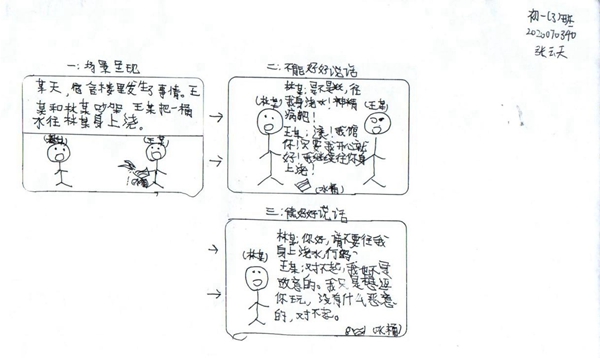 初一(3)班
2020070340
张云天
一:场景呈现
某天,宿舍楼里发生了事情。王
某和林某吵架,王某把一桶
水往林某身上浇。
(林某)
(王某)
(水桶)
二:不能好好说话
林某:是不是啦,往
我身上浇水!神经
病吧!
王某:滚!我管
你!只要我开心就
好!我继续往你身
上浇!
(林某)
(王某)
(水桶)
三:能好好说话
林某:你好,请不要往我
身上浇水,行吗?
王某:对不起,我也不是
故意的。我只是想逗
你玩,没有什么恶意
的,对不起。
(林某)
(水桶)